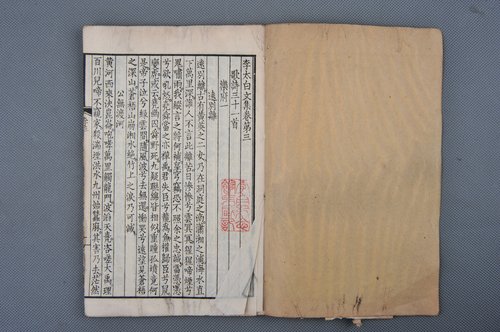 李太白文集卷第三
歌詩三十一首
樂府一
遠別離
遠別離古有黃英之二女乃在洞庭之南瀟湘之浦海水直
下萬里深誰人不言此離苦日慘慘兮雲冥冥猩猩啼煙兮
鬼嘯雨我縱言之將何補皇穹竊恐不照余之忠誠雷憑憑
兮欲吼怒堯舜當之亦禪禹君失臣兮龍為魚權歸臣兮鼠
變虎或言堯幽囚舜野死九疑聯綿皆相似重瞳孤墳竟何
是帝子泣兮綠雲間隨風波兮去無還慟哭兮遠望見蒼梧
之深山蒼梧山崩湘水絕竹上之淚乃可滅
公無渡河
黃河西來決崑崙咆哮萬里觸龍門波滔天堯咨嗟大禹理
百川兒啼不窺家殺湍堙洪水九州始蠶麻其害乃去茫然